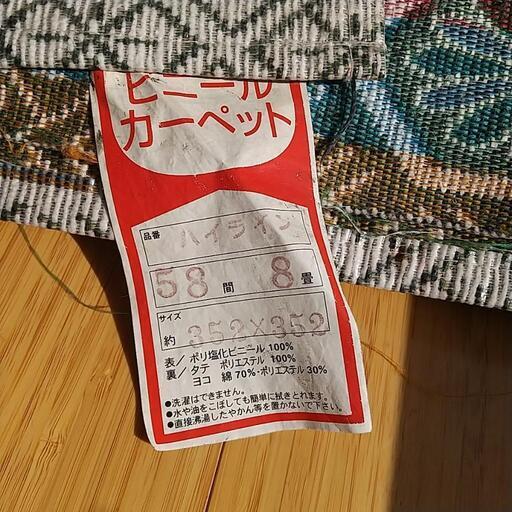 ビニール
カーペット
品番 ハイライン
58 間 8 畳
サイズ
約 352×352
表/ポリ塩化ビニール 100%
裏/タテ ポリエステル 100%
ヨコ 綿 70%・ポリエステル 30%
●洗濯はできません。
●水や油をこぼしても簡単に拭きとれます。
●直接沸湯したやかん等を置かないで下さい。